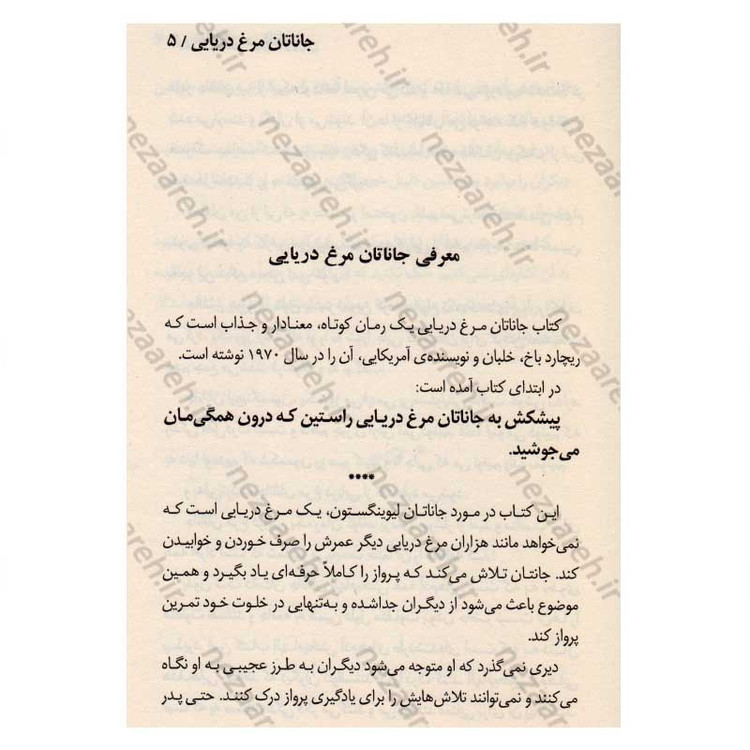 جاناتان مرغ دریایی / ۵
معرفی جاناتان مرغ دریایی
کتاب جاناتان مرغ دریایی یک رمان کوتاه، معنادار و جذاب است که
ریچارد باخ، خلبان و نویسنده‌ی آمریکایی، آن را در سال ۱۹۷۰ نوشته است.
در ابتدای کتاب آمده است:
پیشکش به جاناتان مرغ دریایی راستین که درون همگی‌مان
می‌جوشید.
****
این کتاب در مورد جاناتان لیوینگستون، یک مرغ دریایی است که
نمی‌خواهد مانند هزاران مرغ دریایی دیگر عمرش را صرف خوردن و خوابیدن
کند. جانتان تلاش می‌کند که پرواز را کاملاً حرفه‌ای یاد بگیرد و همین
موضوع باعث می‌شود از دیگران جداشده و به‌تنهایی در خلوت خود تمرین
پرواز کند.
دیری نمی‌گذرد که او متوجه می‌شود دیگران به طرز عجیبی به او نگاه
می‌کنند و نمی‌توانند تلاش‌هایش را برای یادگیری پرواز درک کنند. حتی پدر
nezaareh.ir